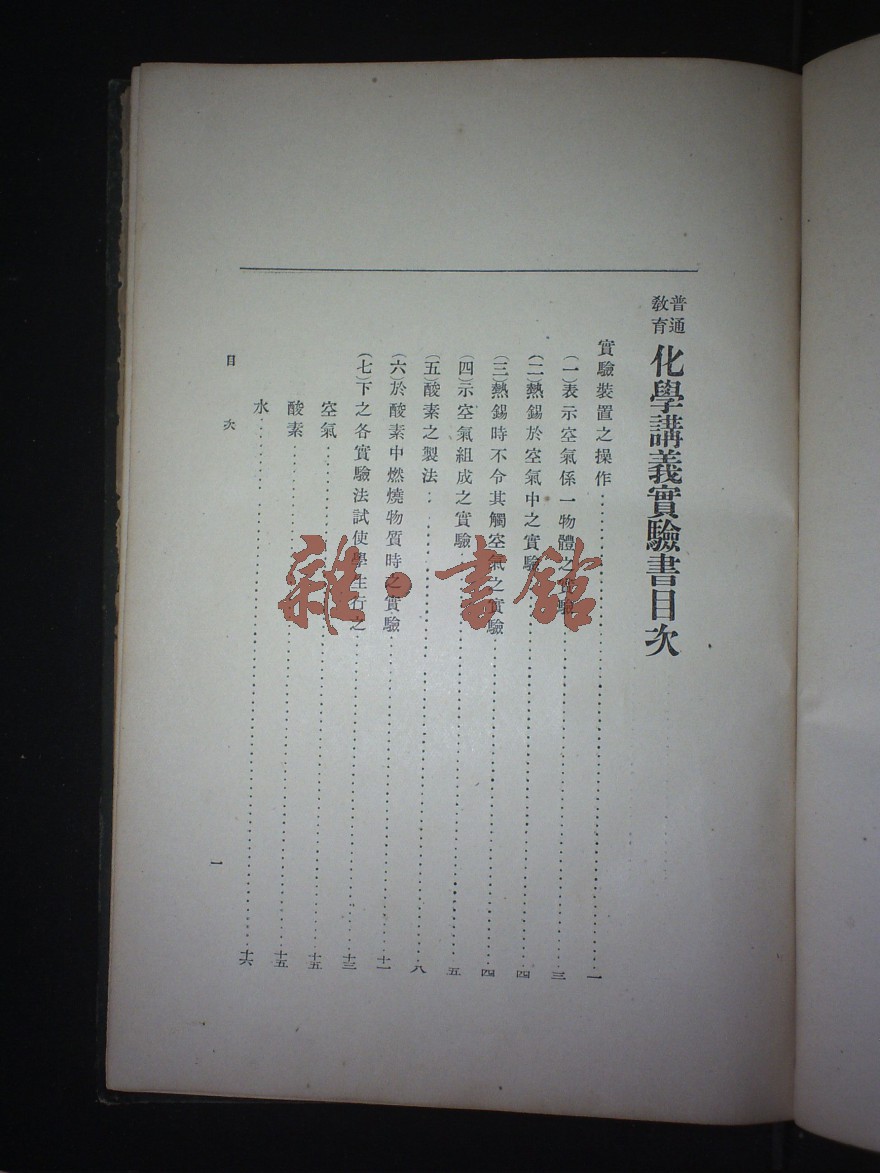 普通教育 化學講義實驗書目次
實驗裝置之操作 一
(一)表示空氣係一物體之實驗 三
(二)熱錫於空氣中之實驗 四
(三)熱錫時不令其觸空氣之實驗 四
(四)示空氣組成之實驗 五
(五)酸素之製法 八
(六)於酸素中燃燒物質時之實驗 十一
(七)下之各實驗法試使學生行之 十三
空氣 十五
酸素 十五
水 十六
目次 一
雜·書館